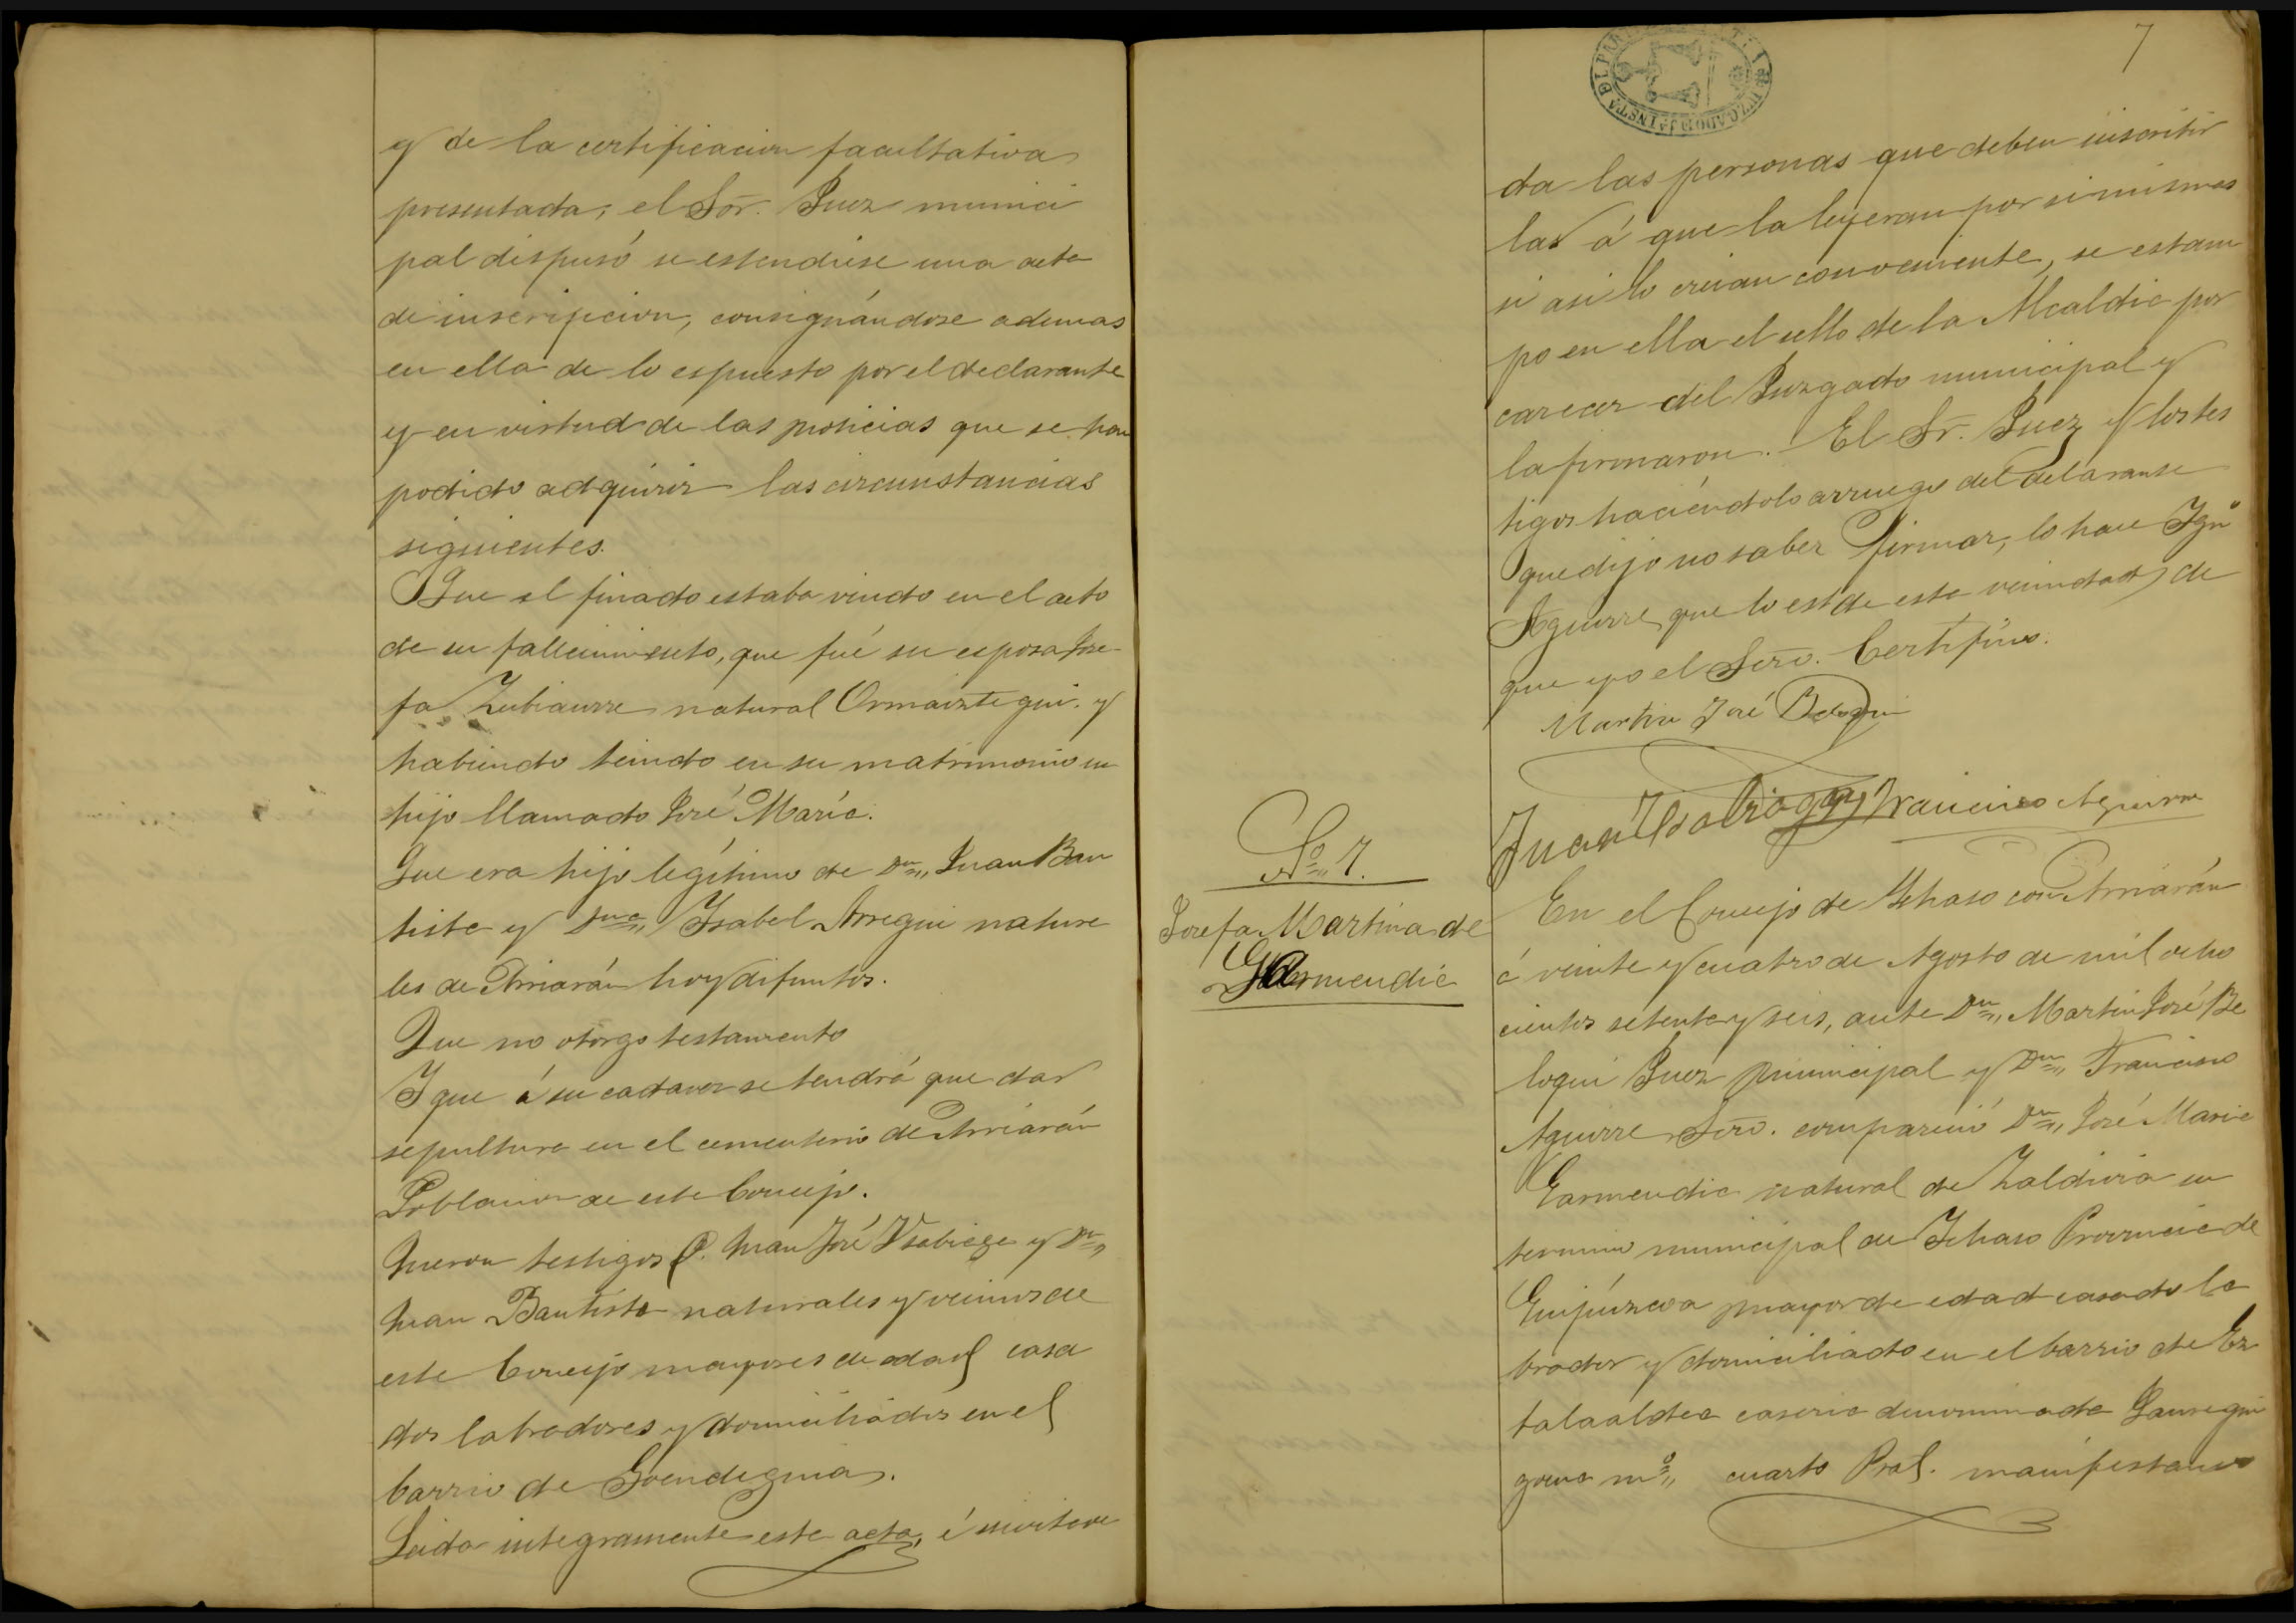 y de la certificacion facultativa
presentada, el Sor. Juez munici
pal dispusó se estendiese una acta
de inscripcion, consignándose ademas
en ella de lo espuesto por el declarante
y en virtud de las noticias que se han
podido adquirir las circunstancias
siguientes.
Que el finado estaba viudo en el acto
de su fallecimiento, que fué su esposa Jose-
fa Zubiaurre natural Ormaiztegui. y
habiendo teindo en su matrimonio un
hijo llamado José María.
Que era hijo legítimo de Dn,, Juan Bau
tista y Dña,, Ysabel Arregui natura
les de Arriarán hoy difuntos.
Que no otorgo testamento
Y que á su cadaver se tendrá que dar
sepultura en el cementerio de Arriarán
Poblacion de este Concejo.
Fueron testigos D. Juan José Ysabiaga y Dn,,
Juan Bautista naturales y vecinos de
este Concejo mayores de edad casa
dos labradores y domiciliados en el
barrio de Goendegina.
Leida integramente este acta, é invitare
7
da las personas que deben inscribir
las á que la leyeran por si mismas
si asi lo creian conveniente, se estam
po en ella el sello de la Alcaldia por
carecer del Juzgado municipal y
la firmaron. El Sr. Juez y los tes
tigos haciéndolo arruego del delarante
que dijo no saber firmar, lo hace Ygno
Aguirre que lo es de esta vecindad, de
que yo el Serio. Certifico.
Martin José Beloqui
Juan Ysabiaga Francisco Aguirre
No,, 7.
Josefa Martina de
Garmendia
En el Concejo de Ychaso con Arriarán
á veinte y cuatro de Agosto de mil ocho
cientos setenta y seis, ante Dn,, Martin José Be
loqui Juez municipal y Dn,, Francisco
Aguirre Serio. compareció Dn,, José Maria
Garmendia natural de Zaldivia en
termino municipal de Ychaso Provincia de
Guipúzcoa mayor de edad casado la
brador y domiciliado en el barrio de Ez
talaaldea caserio denominada Jauregui
goena no,, cuarto Pral. manifestando